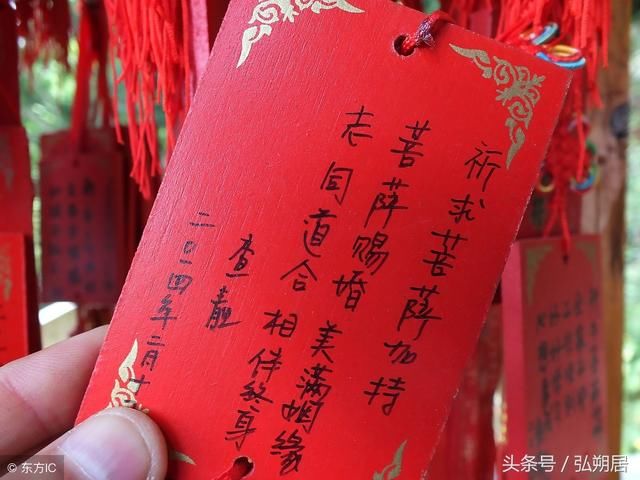 祈求菩萨加持
菩萨赐婚 美满姻缘
志同道合 相侍终身
查
二〇一四年二月十
© 东方IC
头条号 / 弘朔居